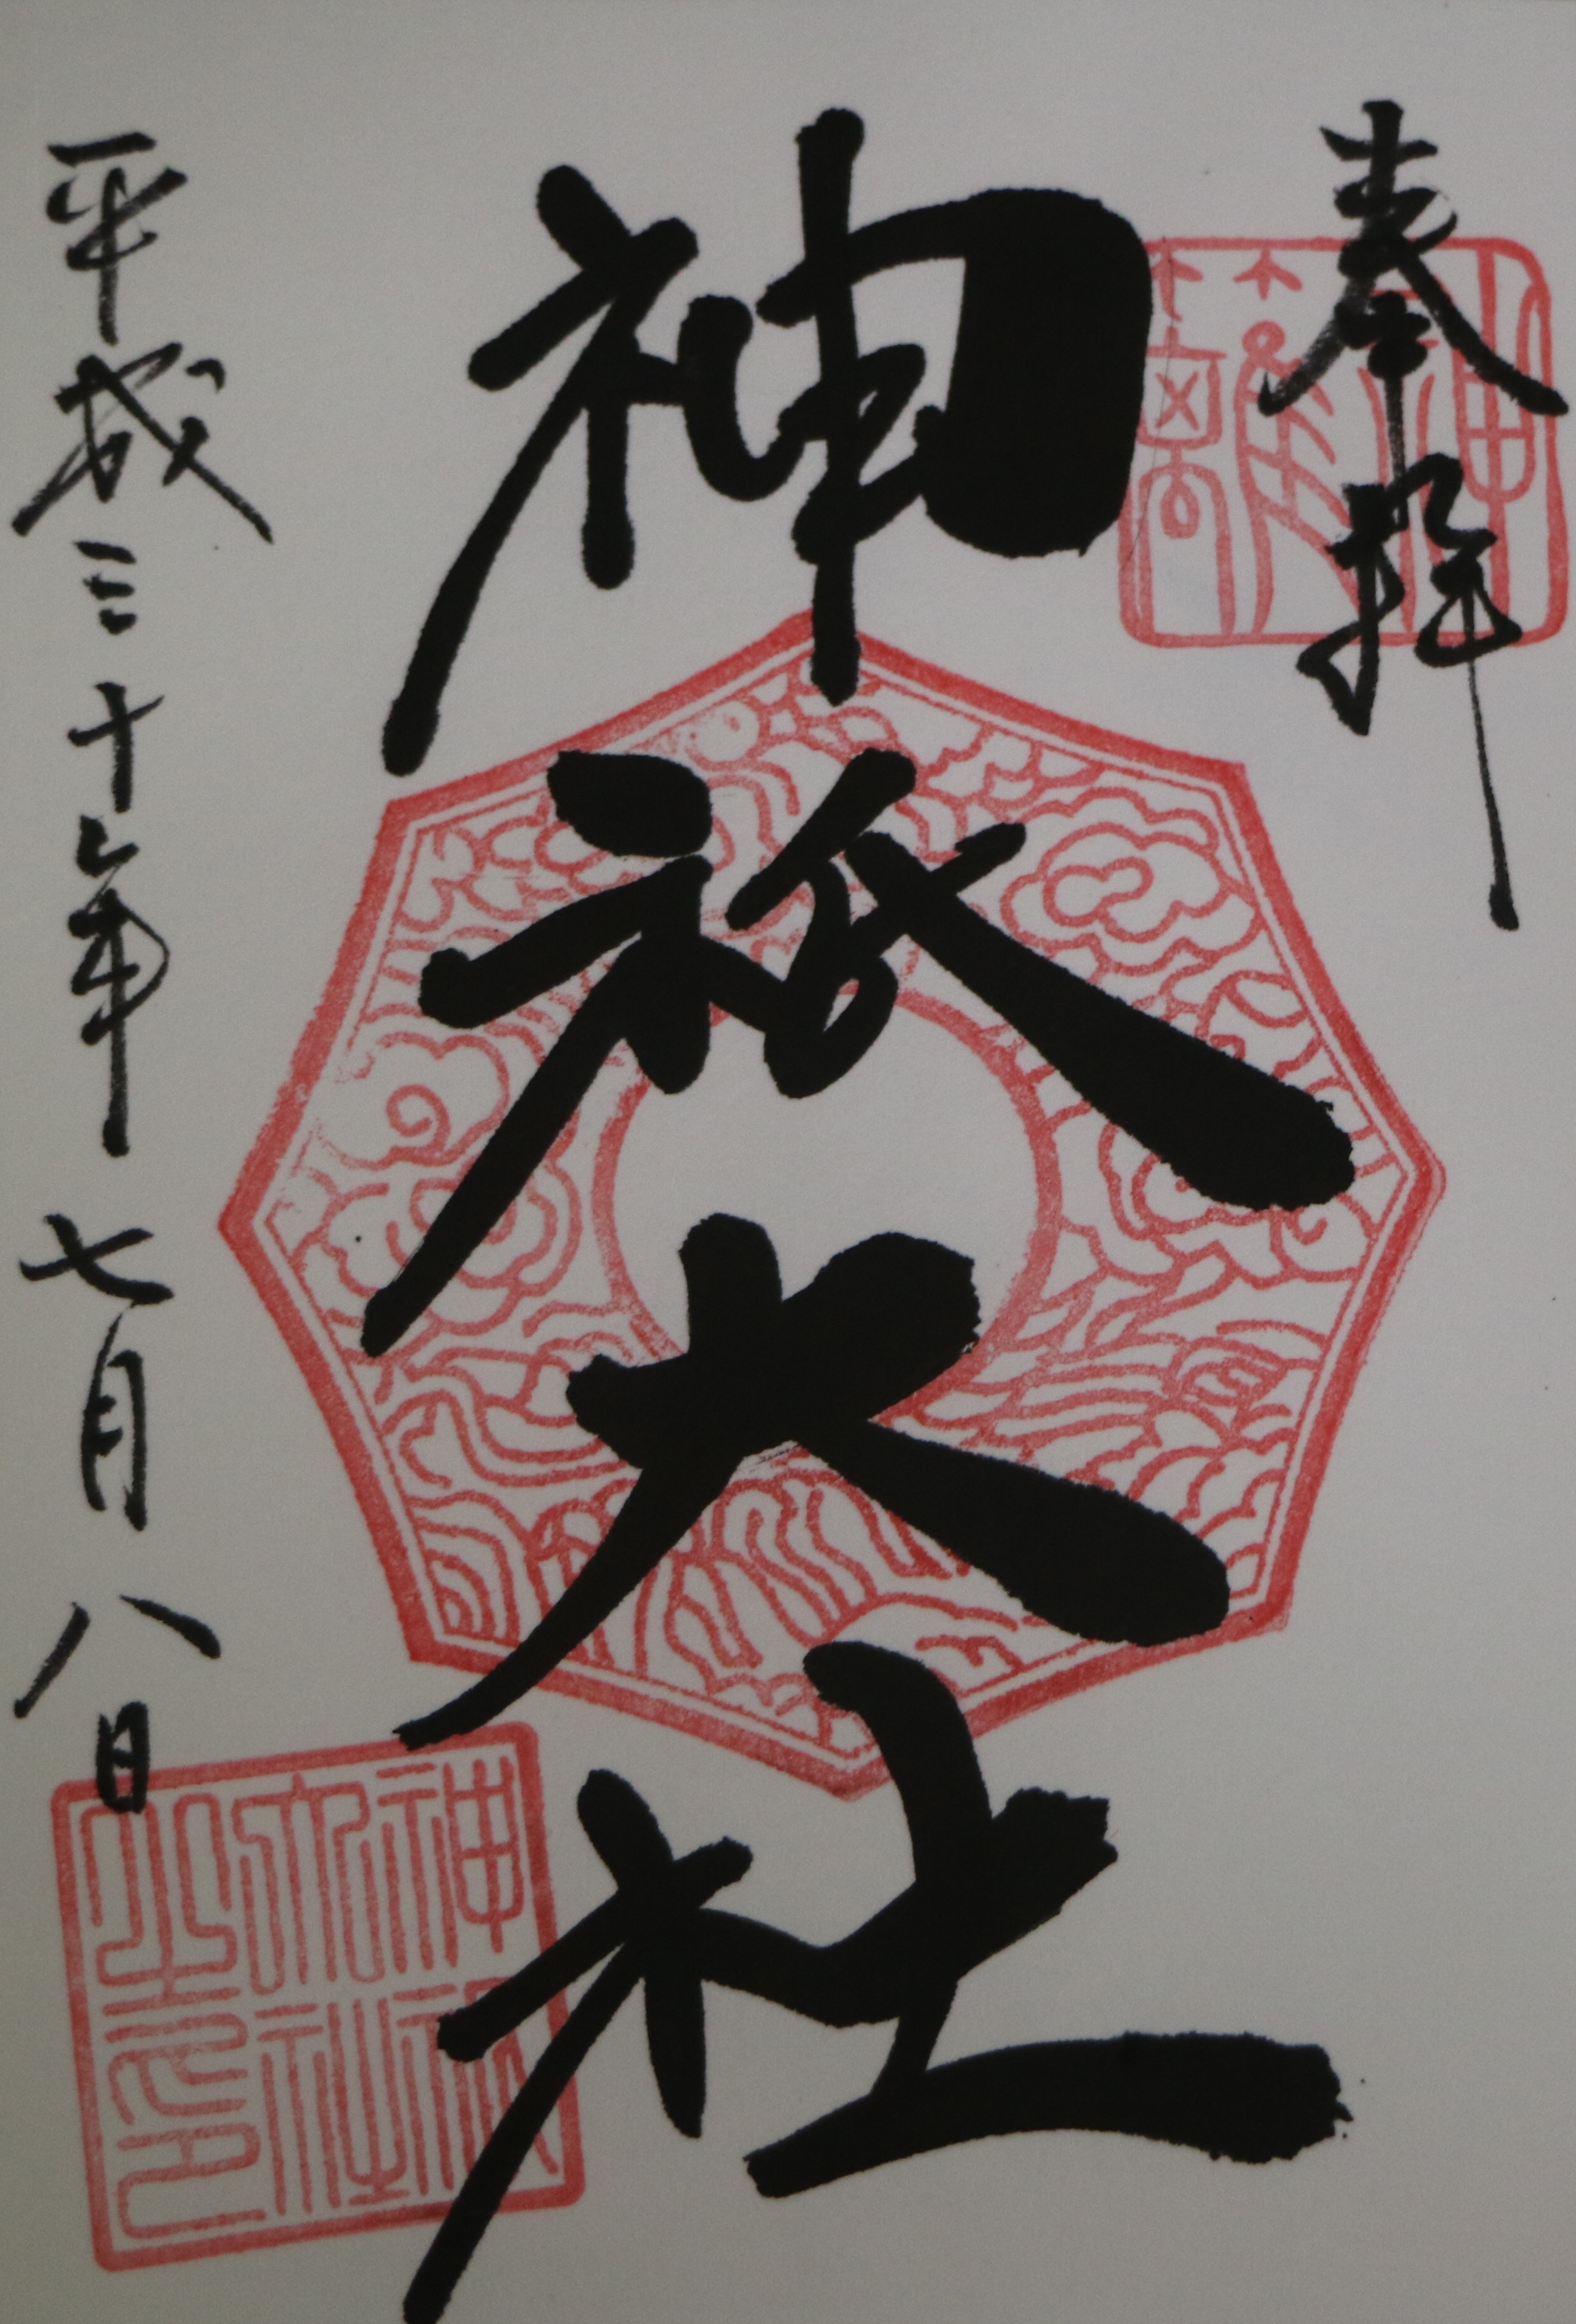 奉拝
神祇大社
平成三十年七月八日
神祇大社之印